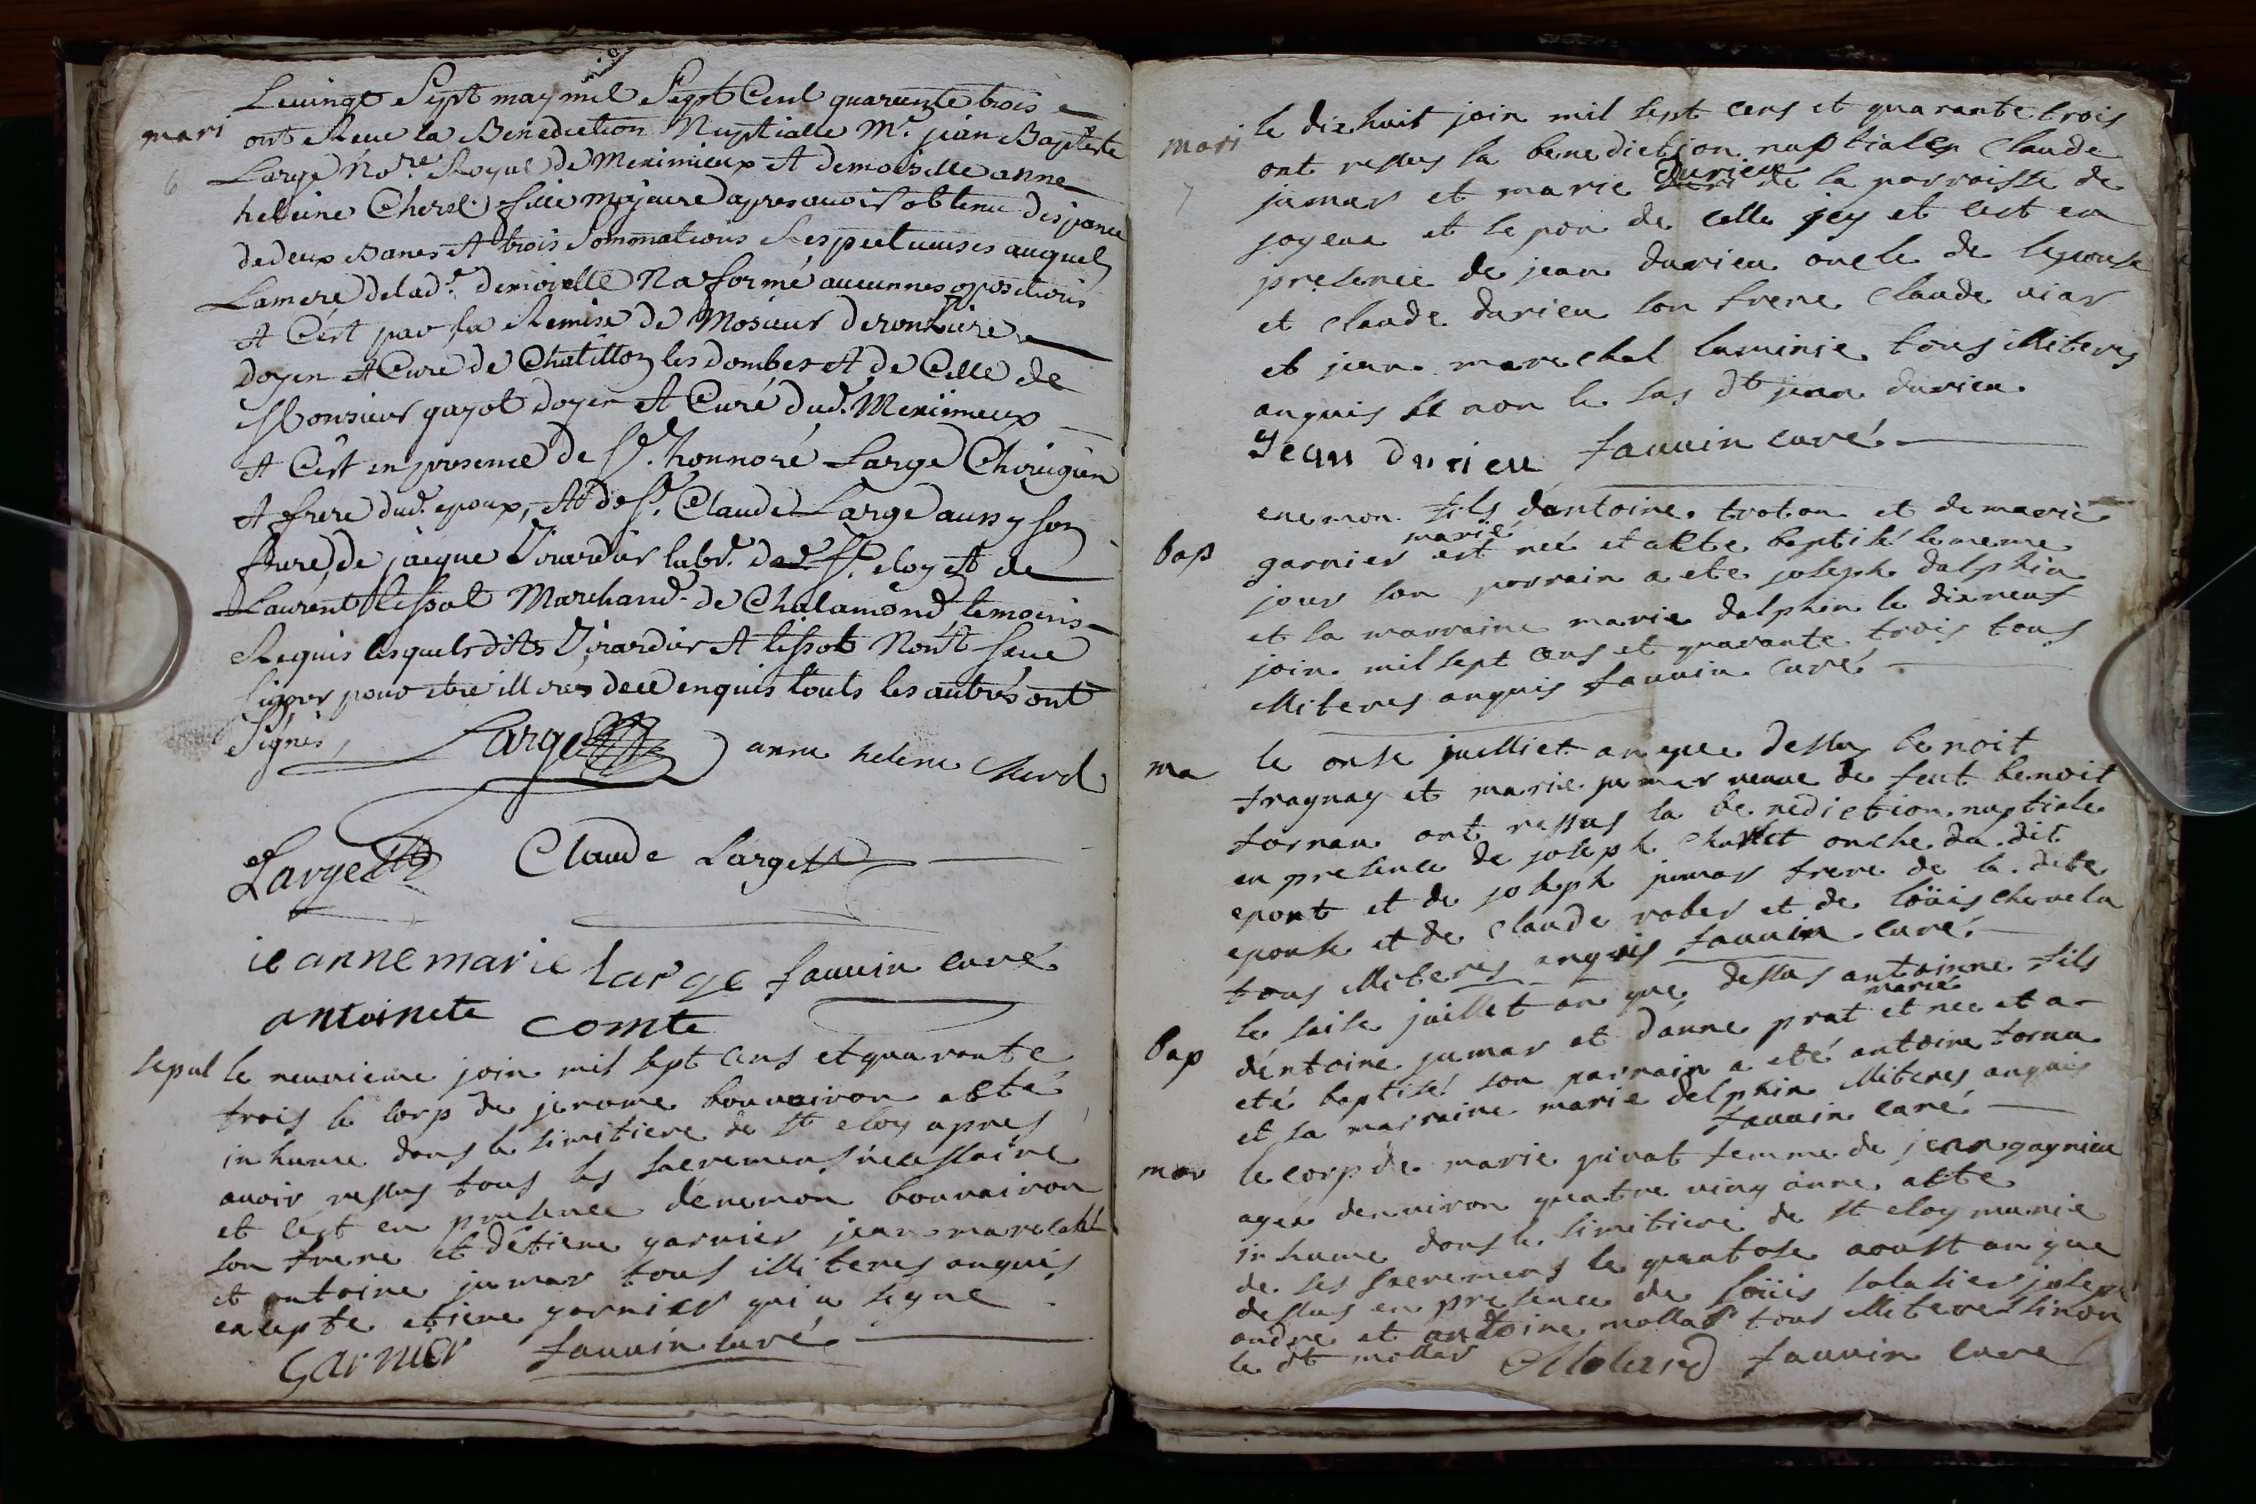 Le vingt Sept may mil Sept Cent quarente trois
mari
ont Receu la Benediction Nuptialle Mr. jean Baptiste
6
Large No.re Royal de Meximieux Et demoiselle anne
heleine Cherel fille majeure apres avoir obtenu dispance
de deux Bancs Et trois Sommations Respectueuses auquels
La mere de lad.e demoiselle Na formé aucunnes opositions
Et C'est par la Remise de Mosieur
Doyen Et Curé de Chatillon les dombes Et de Celle de
Monsieur guyot Doyen Et Curé dud. Meximieux
Et C'est en presence de Sr. honnoré Large Chirugien
Et frere dud. epoux, Et de Sr. Claude Large aussy son
frere, de jacque Girardier labr. de St. eloy Et de
Laurent tissot Marchand de Chalamond temoins
Requis lesquels dits Girardier Et tissot Nont sceu
Signer pour etre illeres de ce enquis touts les autres ont
Signés, Large anne helene Cherel
Large Claude Large
ieanne marie large fauvin curé
antoinete comte
sepul le neuvieme join mil sept cens et quarante
trois le corp de jerome bouvairon a esté
inhumé dans le simitiere de st eloy apres
avoir ressus tous les sacremens necessaire
et cést en presence dénemon bouvairon
son frere et détiene garnier jean marechal
et antoine jumar tous illiteres anquis
excepte etiene garnier qui a signe
Garnier fauvin curé
le dix huit join mil sept cens et quarante trois
mari
ont ressus la benediction nuptiales Claude
7
jumar et marie durieu de la parroisse de
joyeux et lepou de celle jcy et cest en
presence de jean durieu oncle de lepouse
et claude durieu son frere claude viar
et jean marechal luminie tous illiteres
anquis si non le sus dt jean durieu
Jean durieu fauvin curé
enemon fils dantoine troton et de marie
marie
bap garnier est neé et a este baptisé le meme
jour son parrain a ete joseph dalphin
et la marraine marie dalphin le dix neuf
join mil sept cens et quarante trois tous
illiteres anquis fauvin curé
ma le onse juilliet an que dessus benoit
tragnay et marie jumar veuve de feut benoit
fornau ont ressus la benediction nuptiale
en presence de joseph oncle du dit
epout et de joseph jumar frere de la dite
epouse et de Claude rober et de loüis
tous illiteres anquis fauvin curé
le saise juillet an que dessus antoinne fils
marie
bap déntoine jumar et danne prat et nee et a
eté baptisé son parrain a eté antoine forna
et sa marraine marie delphin illiteres anquis
fauvin curé
mor le corp de marie pivat femme de jean gagnieu
ageé denviron quatre ving anne a este
inhume dans le simitiere de st eloy munie
de ses sacremens le quatose aoust an que
dessus en presence de loüis salasier joseph
andre et antoine mollar tous illiteres sinon
le dt mollar Mollard fauvin cure